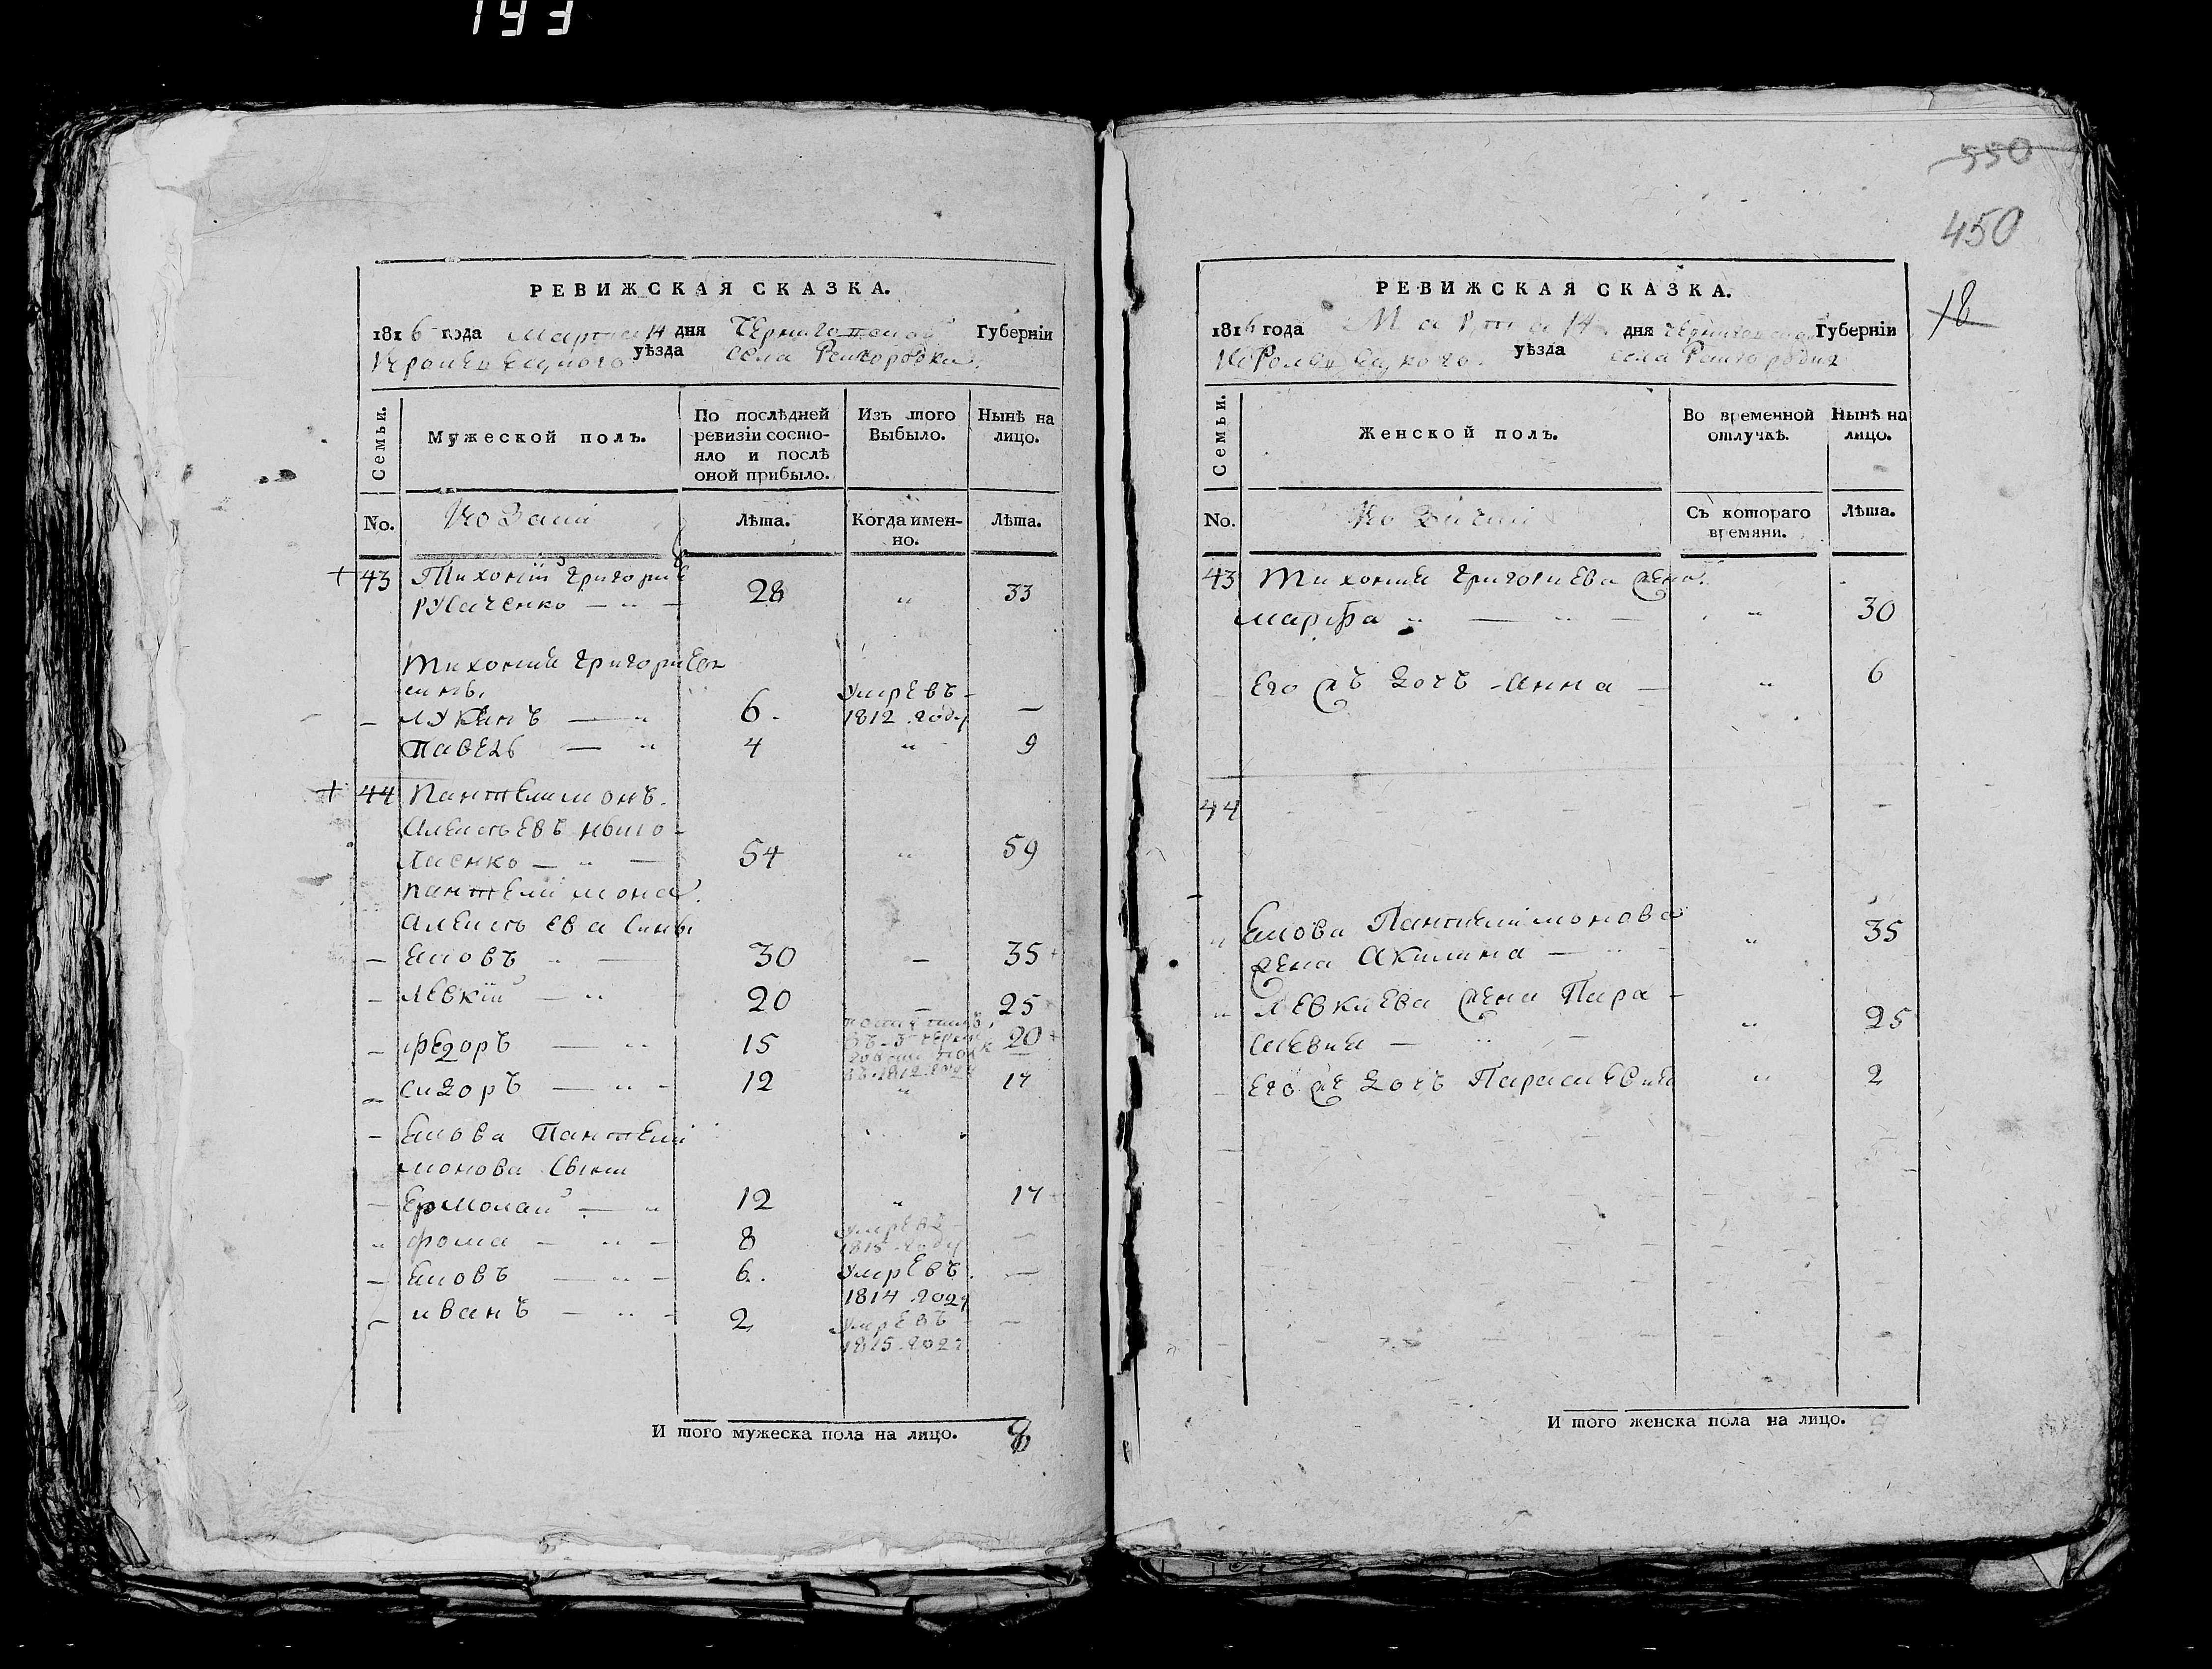 193
РЕВИЖСКАЯ СКАЗКА.
1816 года Марта 14 дня Черниговской Губерніи
уѣзда села Рейгородка.
Семьи.
Мужеской полъ.
По послѣдней ревизіи состояло и послѣ оной прибыло.
Изъ того Выбыло.
Нынѣ на лицо.
No. Козаки Лѣта. Когда именно. Лѣта.
43 Тихоній Григорие
Русаченко — „ — 28 „ 33
Тихонии Григориева
синъ.
— Лукянъ — „ 6 Умревъ 1812 году —
Павелъ — „ 4 „ 9
44 Пантелимонъ
Алексъевъ
54 „ 59
Пантелимона
Алексъева Сины
— Яковъ „ — 30 — 35
— Левкій — „ 20 — 25
— Федоръ — „ 15 въ 1812 году 20
— Сидоръ — „ — 12 „ 17
— Якова Пантели
монова Сыни
— Ермолай — „ 12 „ 17
„ Фома — „ — 8 Умревъ 1815 году —
— Яковъ — „ — 6 Умревъ 1814 году —
— иванъ — „ — 2 Умревъ 1815 году —
И того мужеска пола на лицо. 8
550
450
18
РЕВИЖСКАЯ СКАЗКА.
1816 года Марта 14 дня Черниговской Губерніи
Кролевецкого уѣзда села Рейгородка
Семьи.
Женской полъ.
Во временной отлучкѣ.
Нынѣ на лицо.
No. Козачки Съ котораго времяни. Лѣта.
43 Тихония Григориева жена
Марфа „ — „ — „ 30
Его жъ дочъ Анна — „ 6
44
„ Якова Пантелимонова
жена Акилина — „ 35
„ Левкиева жена Пара-
скевия — „ — „ 25
Его же дочъ Параскевия „ 2
И того женска пола на лицо.